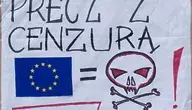 PRECZ Z
CENZURĄ
=